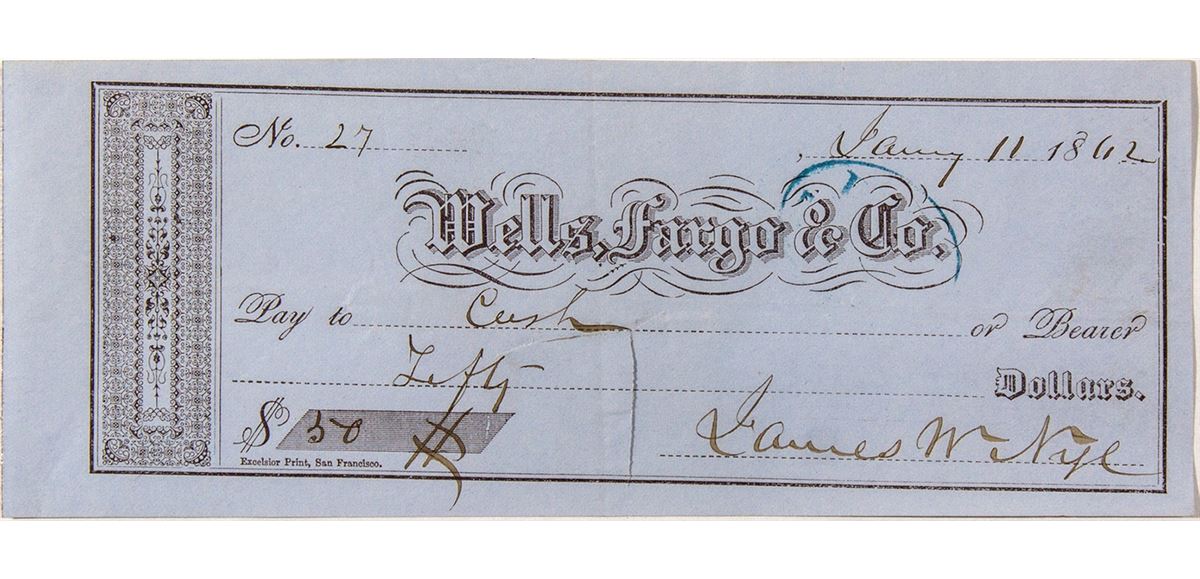 No. 27
Jany 11 1862
Wells, Fargo & Co.
Pay to Cash or Bearer
Fifty Dollars.
$ 50
James W. Nye
Excelsior Print, San Francisco.